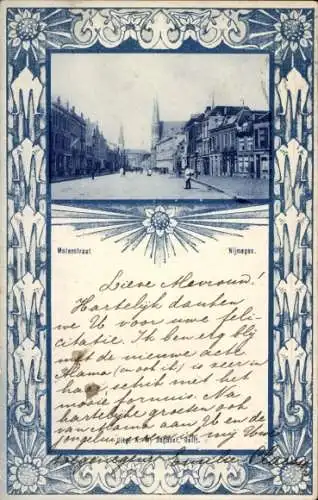 Molenstraat Nijmegen.
Lieve Mevrouw!
Hartelijk danken
we U voor uwe feli-
citatie. Ik ben erg blij
met de nieuwe acte
Mama (en ook ik) is zeer in
haar schik met het
mooie fornuis. Na
hartelijke groeten ook
van Mama aan U en de
jongelui
Uitg.
Delft.